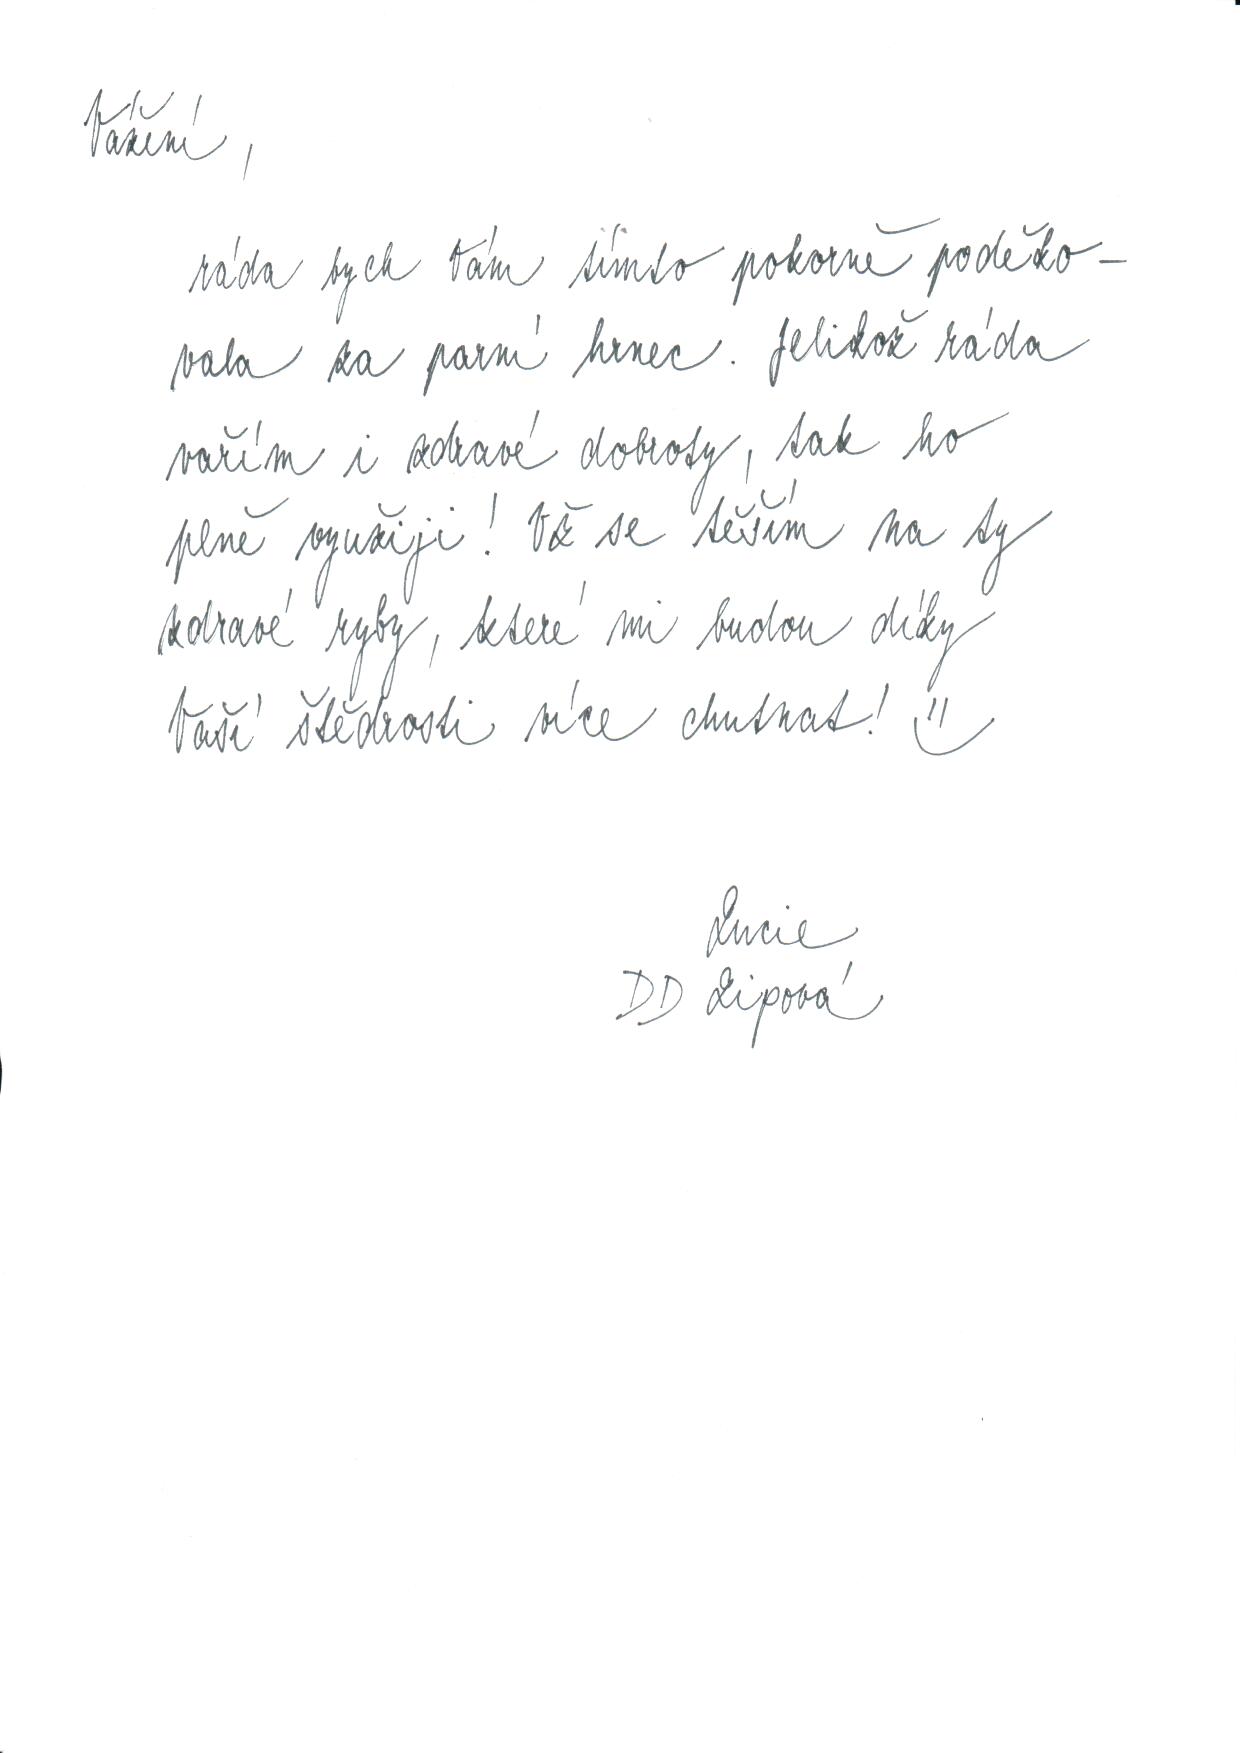 Vážení,
ráda bych Vám tímto pokorně poděko-
vala za parní hrnec. Jelikož ráda
vařím i zdravé dobroty, tak ho
plně využiji! Už se těším na ty
zdravé ryby, které mi budou díky
Vaší štědrosti více chutnat!
Lucie
DD Lipová